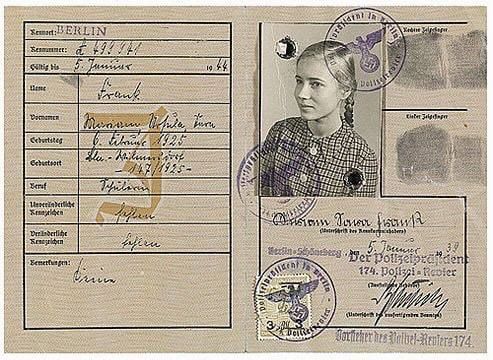 Kennort: BERLIN
Kennummer: A 499941
Gültig bis 5. Januar 1944
Name
Frank
Vornamen
Mariam Ursula, Sara
Geburtstag
6. Februar 1925
Geburtsort
Bln-Wilmersdorf
- 147/1925 -
Beruf
Schülerin
Unveränderliche
Kennzeichen
fehlen
Veränderliche
Kennzeichen
fehlen
Bemerkungen:
Keine
J
Rechter Zeigefinger
Linker Zeigefinger
Der Polizeipräsident in Berlin
Polizeirevier
Mariam Sara Frank
(Unterschrift des Kennkarteninhabers)
Berlin-Schöneberg, den 5. Januar 1939
Der Polizeipräsident
174. Polizei-Revier
(Ausfertigende Behörde)
(Unterschrift des ausfertigenden Beamten)
Vorsteher des Polizei-Reviers 174.
Der Polizeipräsident in Berlin
3 RM 3